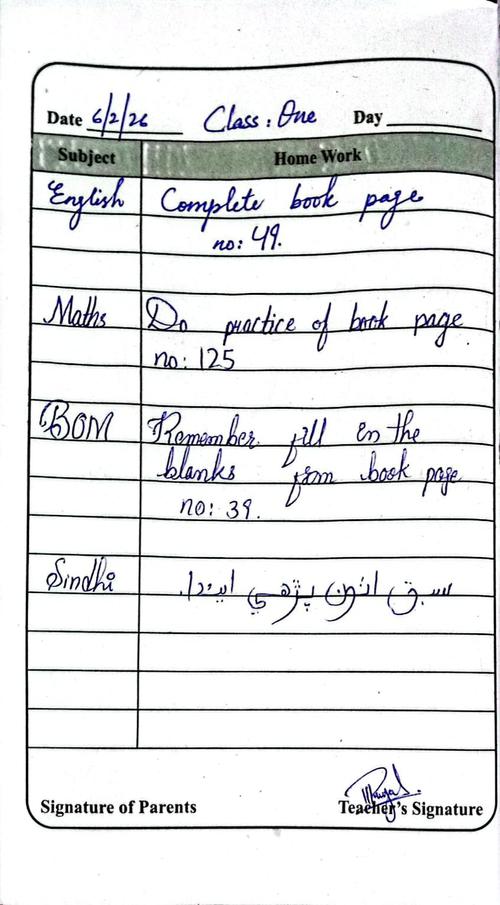 Date 6/2/26 Class: One Day
Subject Home Work
English Complete book page
no: 49.
Maths Do practice of book page
no: 125
BOM Remember fill in the
blanks from book page
no: 39.
Sindhi سبق اٺون پڙهي ايندا.
Signature of Parents Teacher's Signature